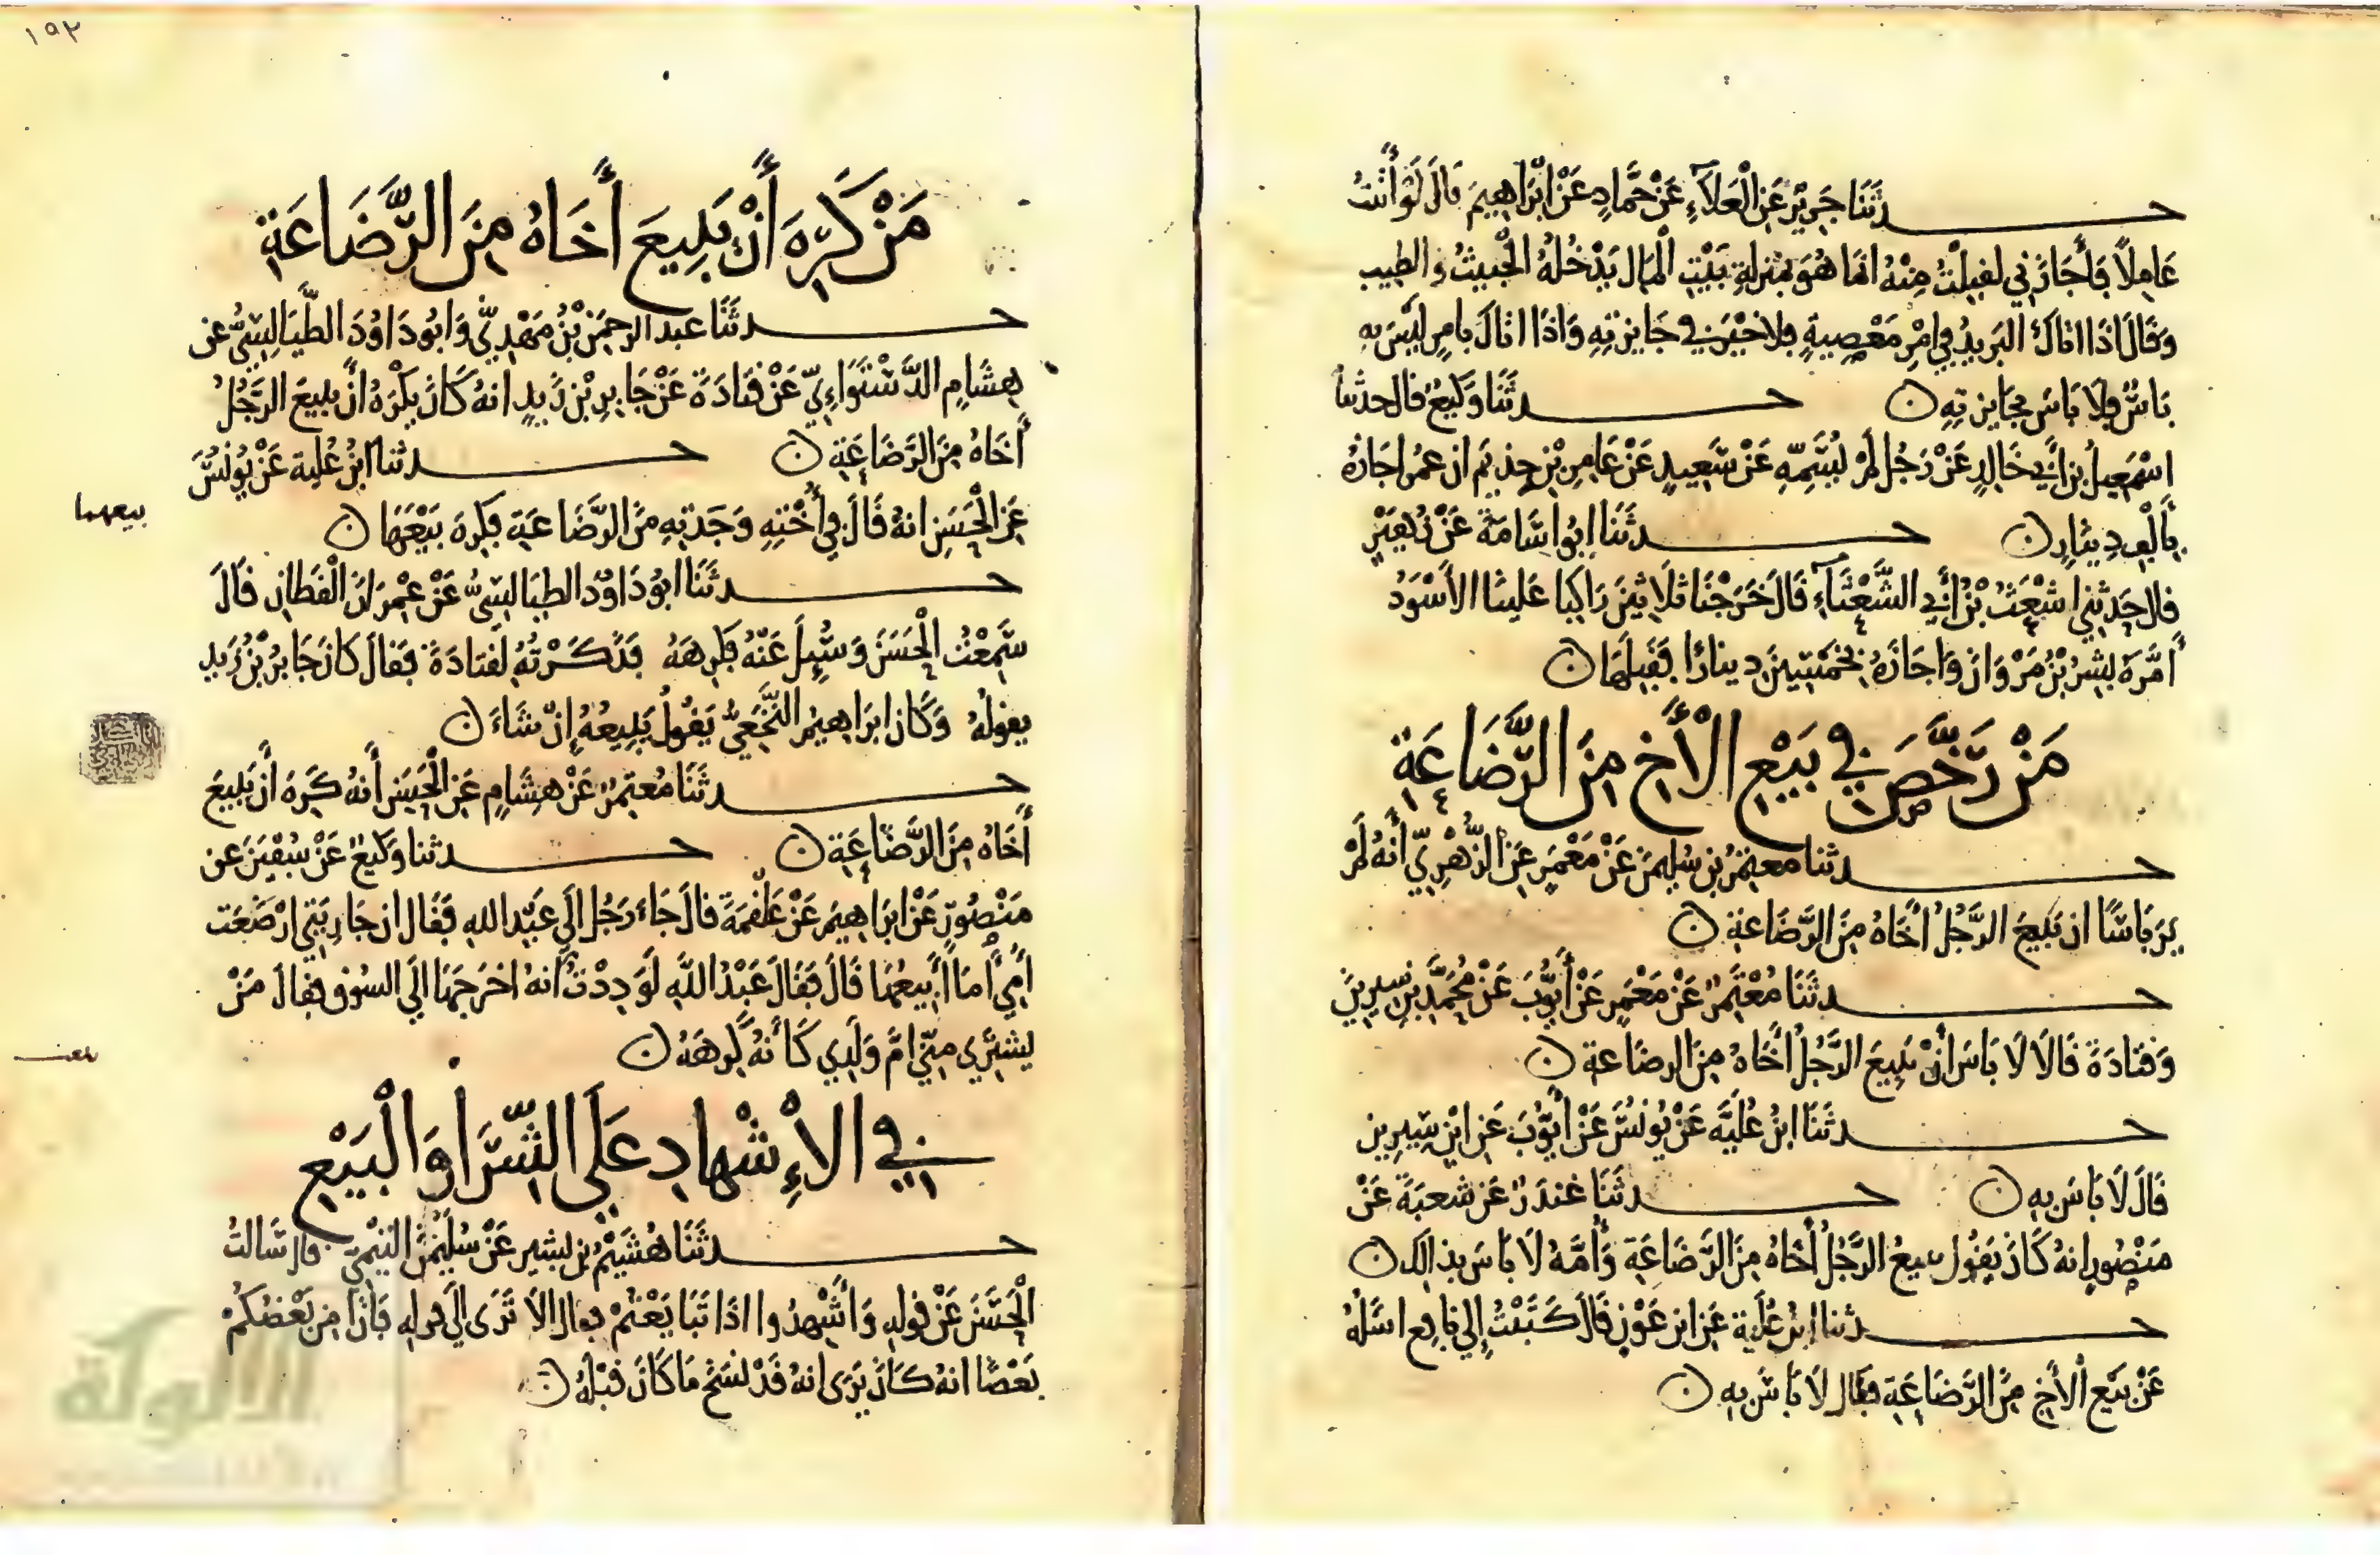 حدثنا جرير عن العلاء عن حماد عن ابراهيم قال لو أتيت
عاملا فأجازني لقبلت منه انما هو بمنزلة بيت المال يدخله الخبيث والطيب
وقال اذا اتاك البريد في امر معصية فلا خير في جايزته واذا اتاك بامر ليس به
باس فلا باس بجايزته ن حدثنا وكيع قال حدثنا
اسمعيل بن أبي خالد عن رجل لم يسمه عن سعيد عن عامر بن حذيم ان عمر اجازه
بألف دينار ن حدثنا ابو اسامة عن زهير
قال حدثني اشعث بن أبي الشعثاء قال خرجنا ثلاثين راكبا علينا الاسود
أمره بشر بن مروان واجازه بخمسين دينارا فقبلها ن
من رخص في بيع الأخ من الرضاعة
حدثنا معتمر بن سليمن عن معمر عن الزهري أنه لم
ير باسا ان يبيع الرجل أخاه من الرضاعة ن
حدثنا معتمر عن معمر عن أيوب عن محمد بن سيرين
وقتادة قالا لا باس أن يبيع الرجل أخاه من الرضاعة ن
حدثنا ابن علية عن يونس عن أيوب عن ابن سيرين
قال لا باس به ن حدثنا غندر عن شعبة عن
منصور انه كان يقول يبيع الرجل أخاه من الرضاعة وأمه لا باس بذلك ن
حدثنا ابن علية عن ابن عون قال كتبت إلي نافع اسله
عن بيع الأخ من الرضاعة فقال لا باس به ن
١٥٢
من كره أن يبيع أخاه من الرضاعة
حدثنا عبد الرحمن بن مهدي وابو داود الطيالسي عن
هشام الدستوائي عن قتادة عن جابر بن زيد انه كان يكره أن يبيع الرجل
أخاه من الرضاعة ن حدثنا ابن علية عن يونس
عن الحسن انه قال في أخته وجدته من الرضاعة فكره بيعها ن
بيعهما
حدثنا ابو داود الطيالسي عن عمران القطان قال
سمعت الحسن وسئل عنه فكرهه فذكرته لقتادة فقال كان جابر بن زيد
يقوله وكان ابراهيم النخعي يقول يبيعه إن شاء ن
حدثنا معتمر عن هشام عن الحسن أنه كره أن يبيع
أخاه من الرضاعة ن حدثنا وكيع عن سفين عن
منصور عن ابراهيم عن علقمة قال جاء رجل الي عبد الله فقال ان جاريتي ارضعت
أمي أما أبيعها قال فقال عبد الله لوددت أنه اخرجها الي السوق فقال من
يشتري مني ام ولدي كأنه كرهه ن
في الإشهاد علي الشرا والبيع
حدثنا هشيم بن بشير عن سليمن التيمي قال سالت
الحسن عن قوله وأشهدوا اذا تبايعتم فقال الا تري الي قوله فإن أمن بعضكم
بعضا انه كان يرى انه قد نسخ ما كان قبله ن
الالوكة